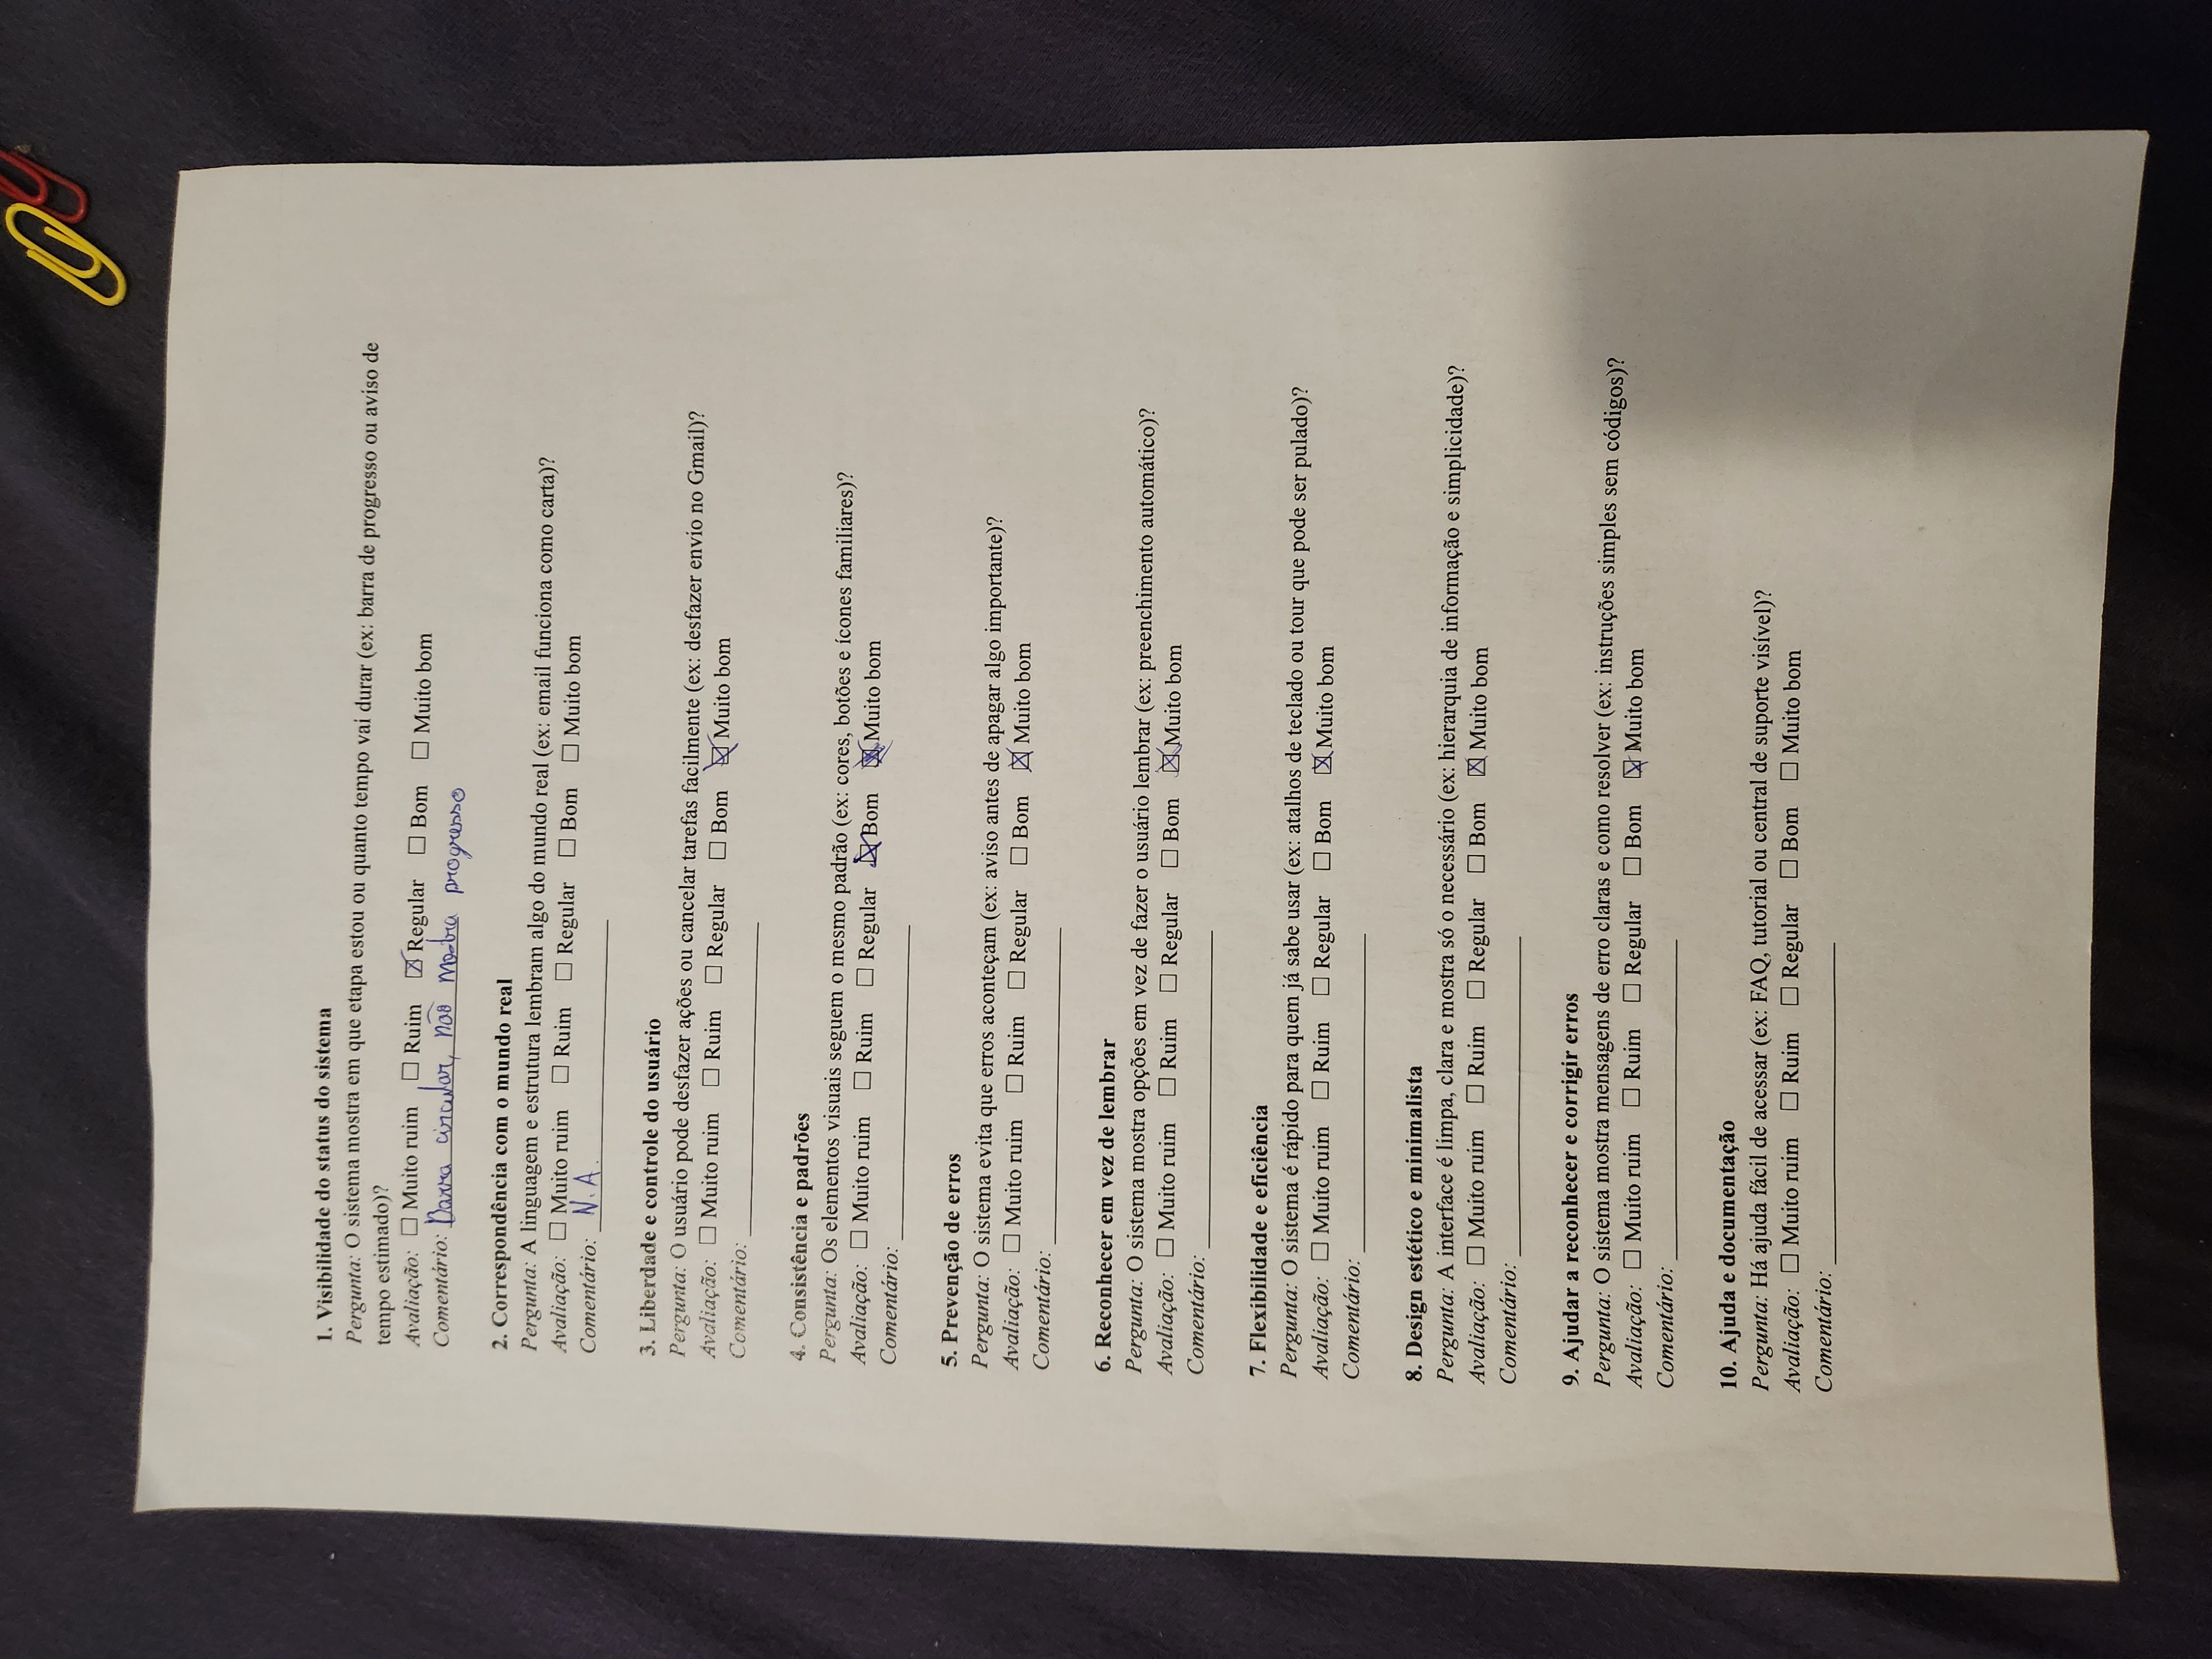 1. Visibilidade do status do sistema
Pergunta: O sistema mostra em que etapa estou ou quanto tempo vai durar (ex: barra de progresso ou aviso de
tempo estimado)?
Avaliação: ☐ Muito ruim ☐ Ruim ☒ Regular ☐ Bom ☐ Muito bom
Comentário: Barra circular, não mostra progresso
2. Correspondência com o mundo real
Pergunta: A linguagem e estrutura lembram algo do mundo real (ex: email funciona como carta)?
Avaliação: ☐ Muito ruim ☐ Ruim ☐ Regular ☐ Bom ☐ Muito bom
Comentário: N.A.
3. Liberdade e controle do usuário
Pergunta: O usuário pode desfazer ações ou cancelar tarefas facilmente (ex: desfazer envio no Gmail)?
Avaliação: ☐ Muito ruim ☐ Ruim ☐ Regular ☐ Bom ☒ Muito bom
Comentário:
4. Consistência e padrões
Pergunta: Os elementos visuais seguem o mesmo padrão (ex: cores, botões e ícones familiares)?
Avaliação: ☐ Muito ruim ☐ Ruim ☐ Regular ☒ Bom ☒ Muito bom
Comentário:
5. Prevenção de erros
Pergunta: O sistema evita que erros aconteçam (ex: aviso antes de apagar algo importante)?
Avaliação: ☐ Muito ruim ☐ Ruim ☐ Regular ☐ Bom ☒ Muito bom
Comentário:
6. Reconhecer em vez de lembrar
Pergunta: O sistema mostra opções em vez de fazer o usuário lembrar (ex: preenchimento automático)?
Avaliação: ☐ Muito ruim ☐ Ruim ☐ Regular ☐ Bom ☒ Muito bom
Comentário:
7. Flexibilidade e eficiência
Pergunta: O sistema é rápido para quem já sabe usar (ex: atalhos de teclado ou tour que pode ser pulado)?
Avaliação: ☐ Muito ruim ☐ Ruim ☐ Regular ☐ Bom ☒ Muito bom
Comentário:
8. Design estético e minimalista
Pergunta: A interface é limpa, clara e mostra só o necessário (ex: hierarquia de informação e simplicidade)?
Avaliação: ☐ Muito ruim ☐ Ruim ☐ Regular ☐ Bom ☒ Muito bom
Comentário:
9. Ajudar a reconhecer e corrigir erros
Pergunta: O sistema mostra mensagens de erro claras e como resolver (ex: instruções simples sem códigos)?
Avaliação: ☐ Muito ruim ☐ Ruim ☐ Regular ☐ Bom ☒ Muito bom
Comentário:
10. Ajuda e documentação
Pergunta: Há ajuda fácil de acessar (ex: FAQ, tutorial ou central de suporte visível)?
Avaliação: ☐ Muito ruim ☐ Ruim ☐ Regular ☐ Bom ☐ Muito bom
Comentário: